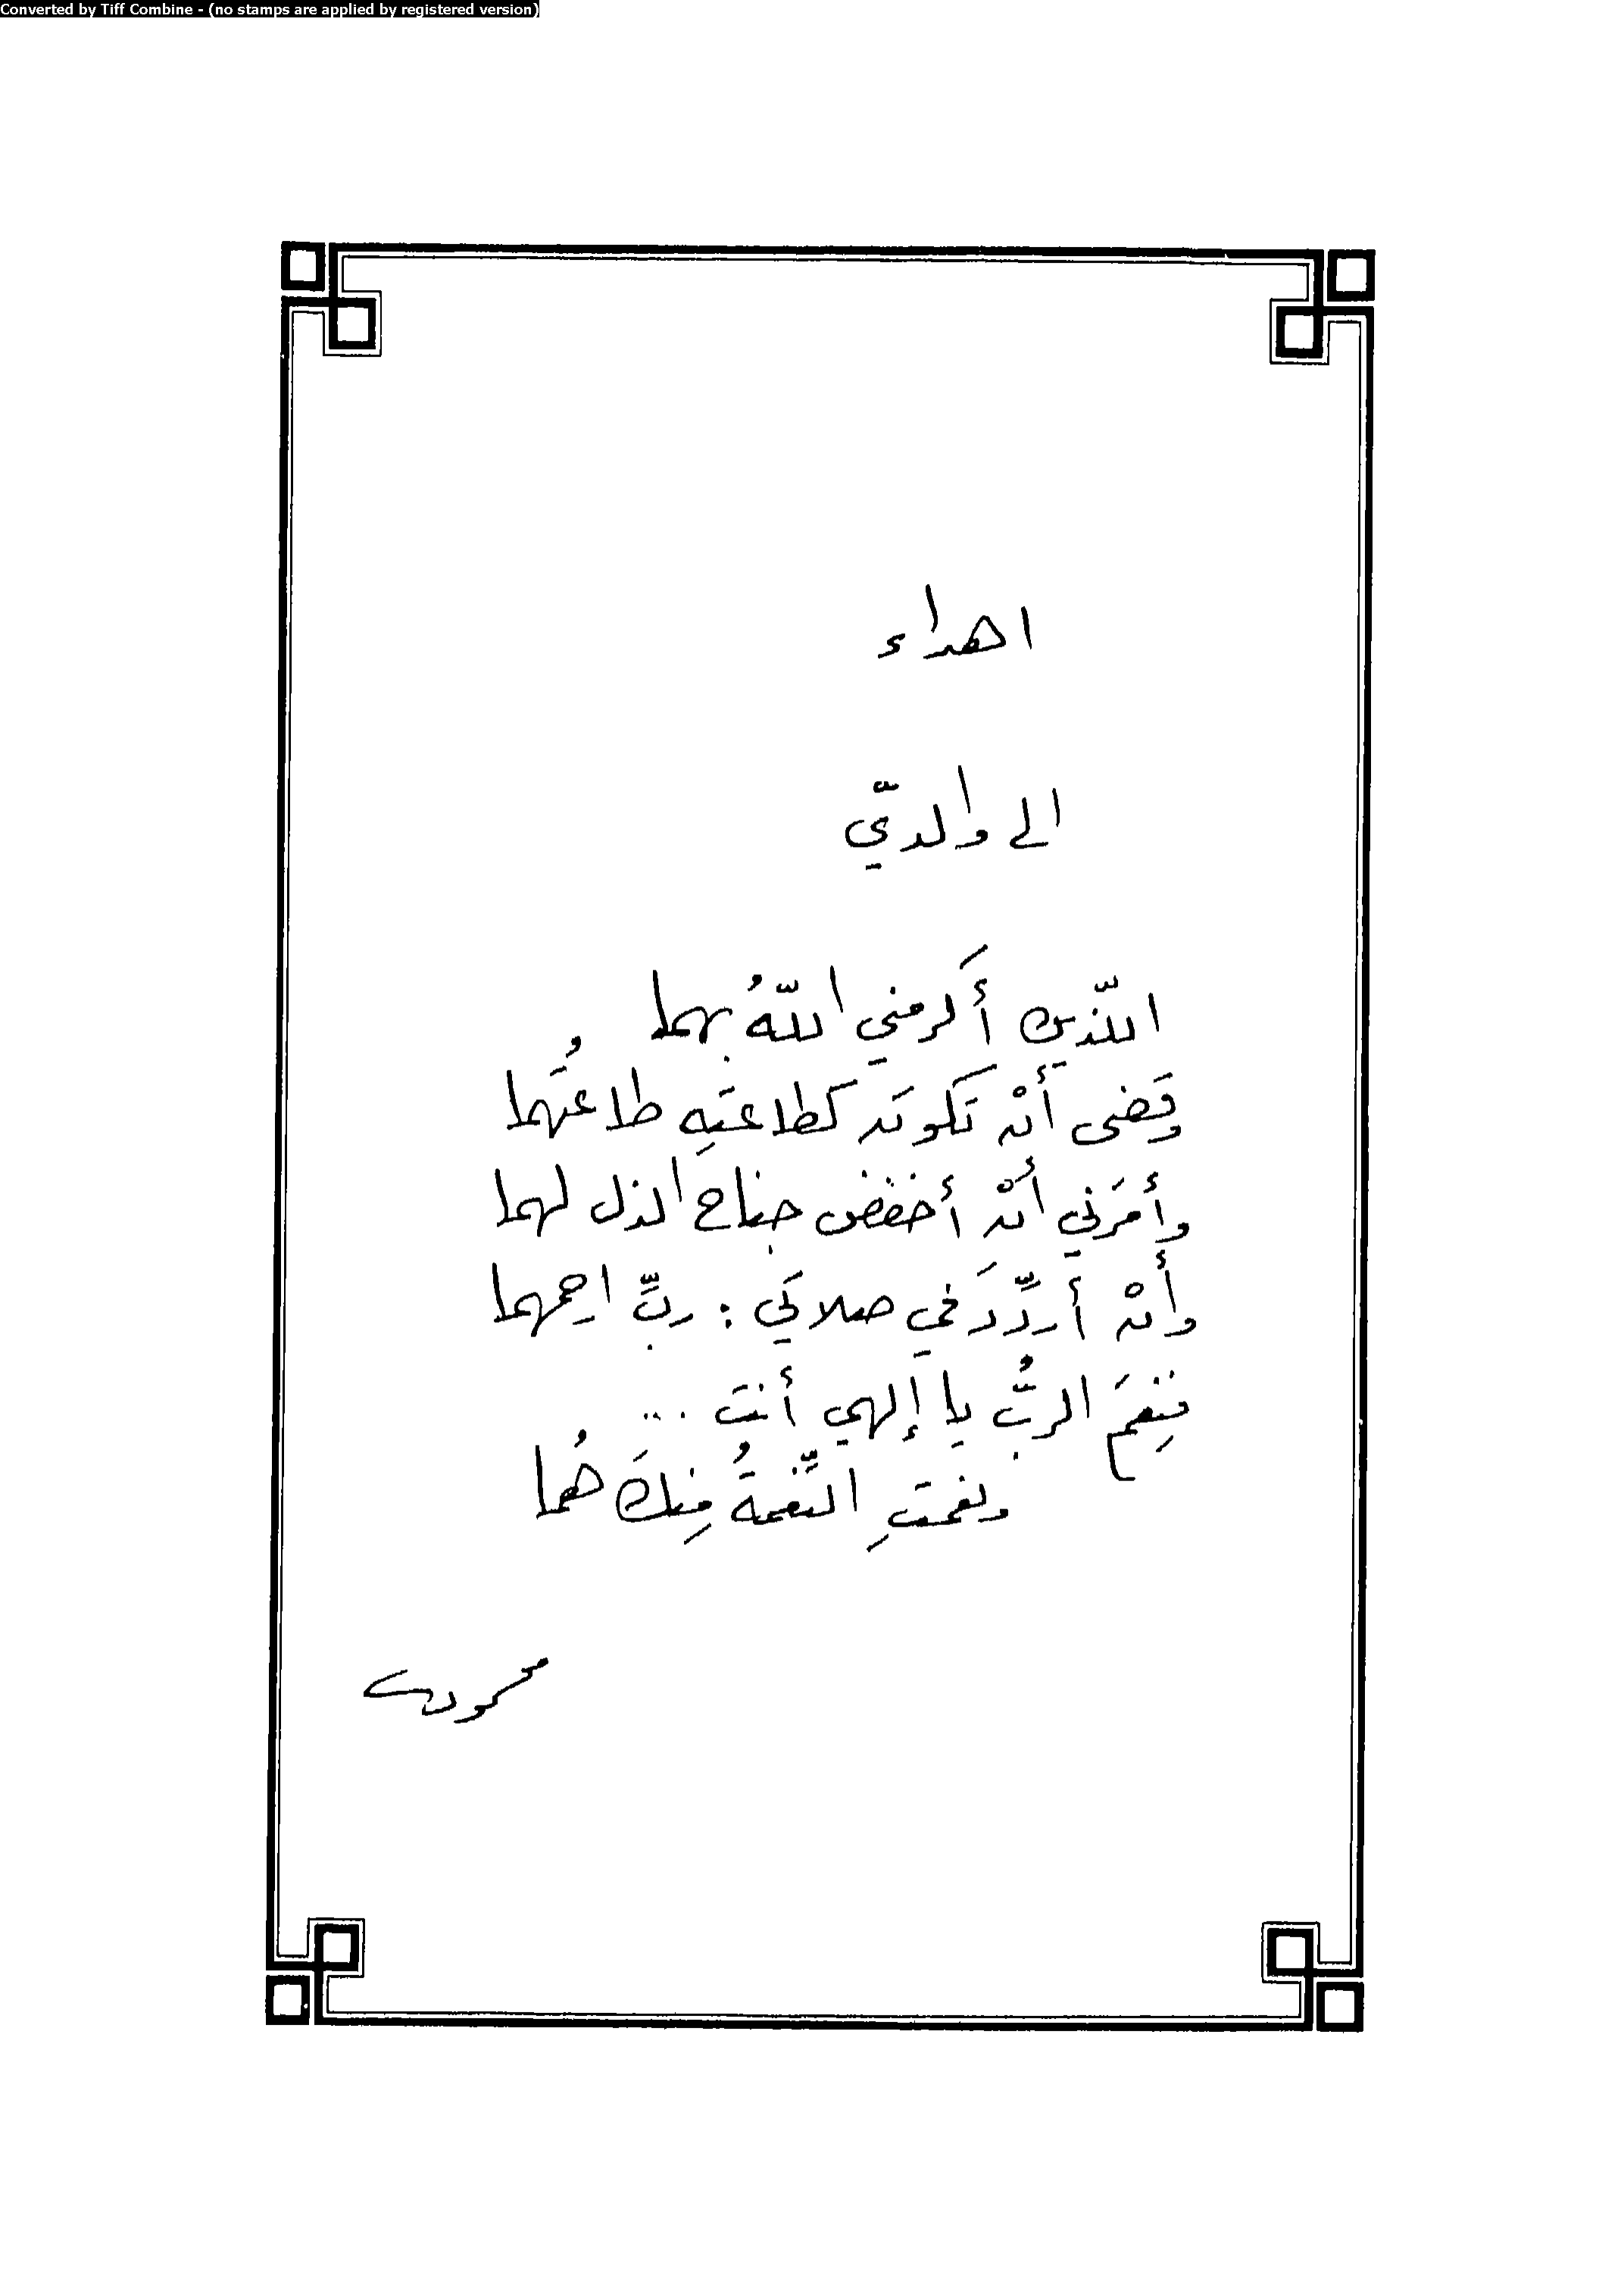 Converted by Tiff Combine - (no stamps are applied by registered version)
اهداء
الى والديّ
اللّذين أَكرمني اللّهُ بهما
وقَضى أنْ تكونَ كطاعتِهِ طاعتُهما
وأمَرَني أنْ أخفض جناح الذل لهما
وأنْ أردِّدَ في صلاتي : ربِّ ارحمهما
فنِعمَ الربُّ يا إلهي أنتَ ...
ونعمتِ النِّعمةُ مِنكَ هُما
محمود